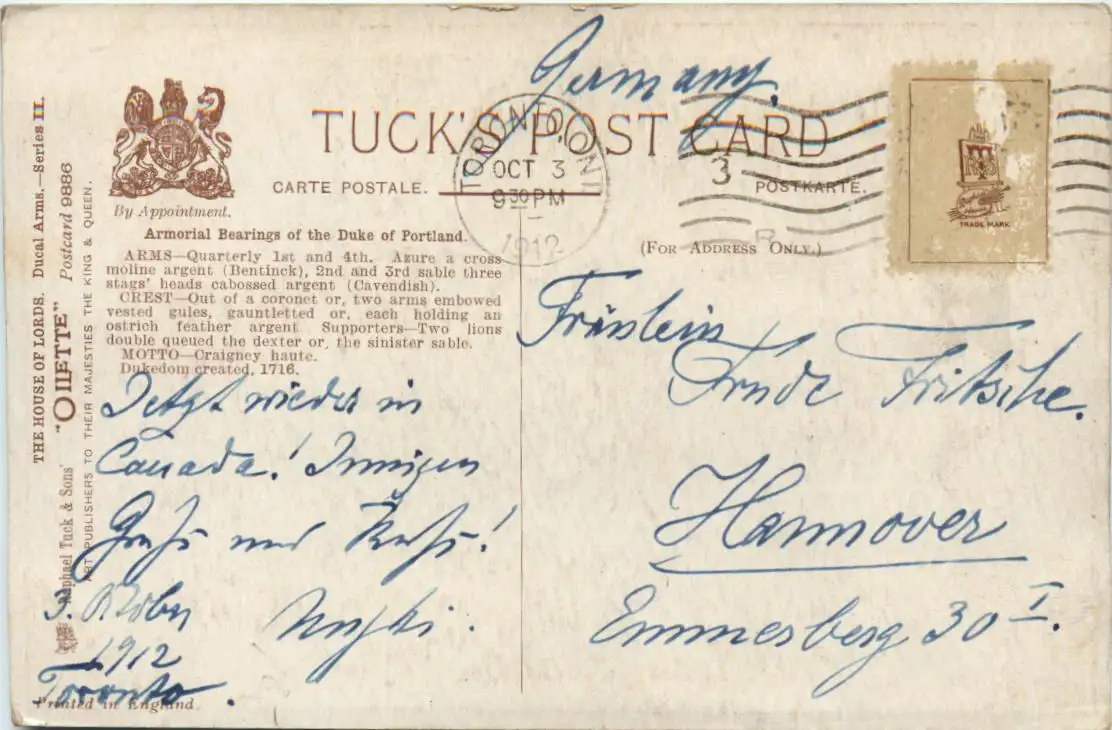 Germany.
TUCK'S POST CARD
CARTE POSTALE.
POSTKARTE.
TORONTO, ONT
OCT 3
9 30 PM
1912
3
TRADE MARK
By Appointment.
(FOR ADDRESS ONLY.)
Armorial Bearings of the Duke of Portland.
ARMS—Quarterly 1st and 4th. Azure a cross
moline argent (Bentinck), 2nd and 3rd sable three
stags' heads cabossed argent (Cavendish).
CREST—Out of a coronet or, two arms embowed
vested gules, gauntletted or, each holding an
ostrich feather argent. Supporters—Two lions
double queued the dexter or, the sinister sable.
MOTTO—Craigney haute.
Dukedom created, 1716.
THE HOUSE OF LORDS. Ducal Arms.—Series II.
Raphael Tuck & Sons' "OILETTE" Postcard 9886
ART PUBLISHERS TO THEIR MAJESTIES THE KING & QUEEN.
Jetzt wieder in
Canada! Innigen
Gruß und Kuß!
3. Oktober
1912
Toronto.
Printed in England.
Fräulein
Fritsche.
Hannover
Emmesberg 30 I.